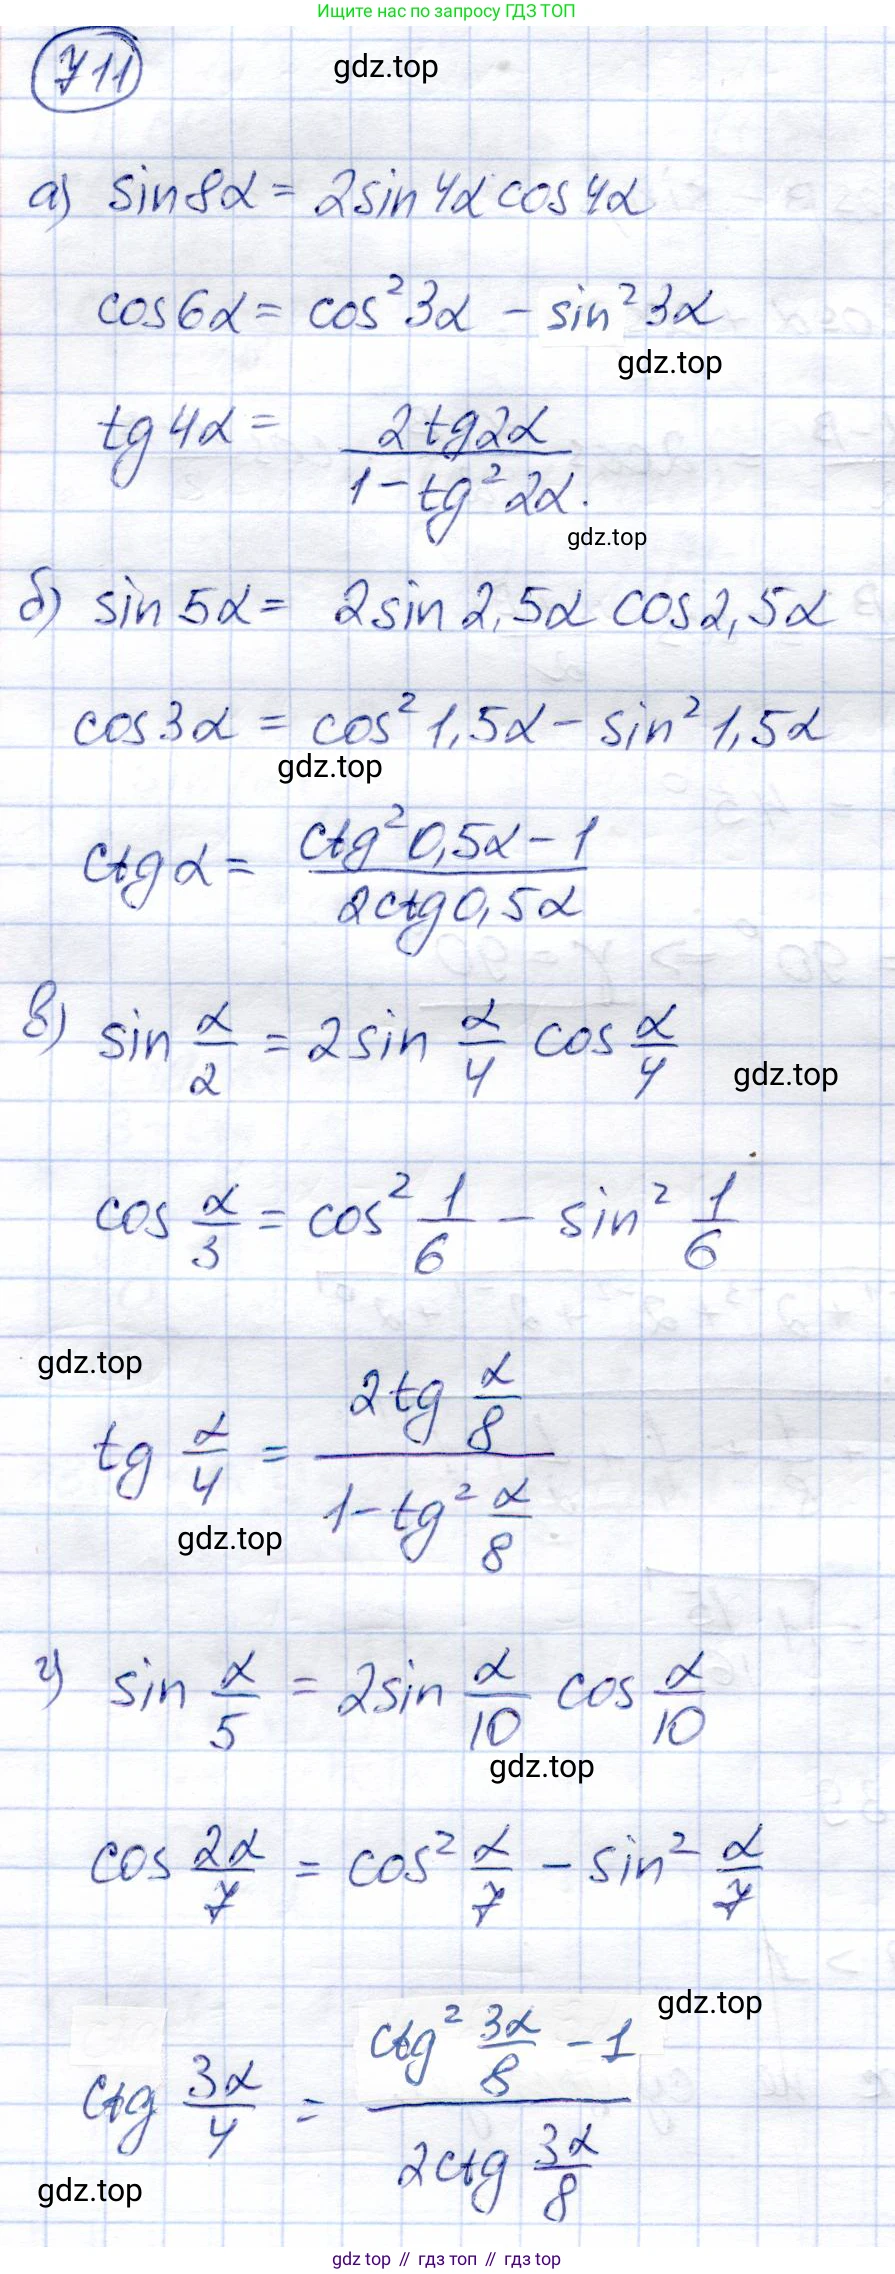 Ищите нас по запросу ГДЗ ТОП
711
gdz.top
а) sin8α = 2sin4α cos4α
cos6α = cos²3α − sin²3α
gdz.top
tg4α = (2tg2α)/(1−tg²2α).
gdz.top
б) sin5α = 2sin2,5α cos2,5α
cos3α = cos²1,5α − sin²1,5α
gdz.top
ctgα = (ctg²0,5α − 1)/(2ctg0,5α)
в) sin α/2 = 2sin α/4 cos α/4
gdz.top
cos α/3 = cos² 1/6 − sin² 1/6
gdz.top
tg α/4 = (2tg α/8)/(1−tg² α/8)
gdz.top
г) sin α/5 = 2sin α/10 cos α/10
gdz.top
cos 2α/7 = cos² α/7 − sin² α/7
gdz.top
ctg 3α/4 = (ctg² 3α/8 − 1)/(2ctg 3α/8)
gdz.top
gdz top // гдз топ // гдз top